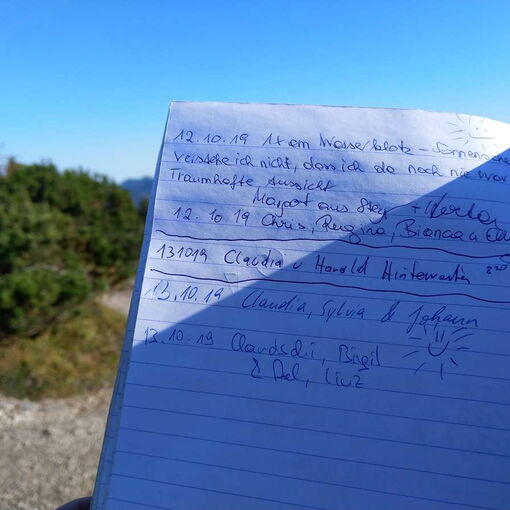 12.10.19 1x am Wasserklotz - Sonnensche
verstehe ich nicht, dass ich da noch nie war
Traumhafte Aussicht
Margot aus Steyr +
12.10.19 Chris, Regina, Bianca u
131019 Claudia u Harold 830
13.10.19 Claudia, Sylvia & Johann
13.10.19 Birgit
&